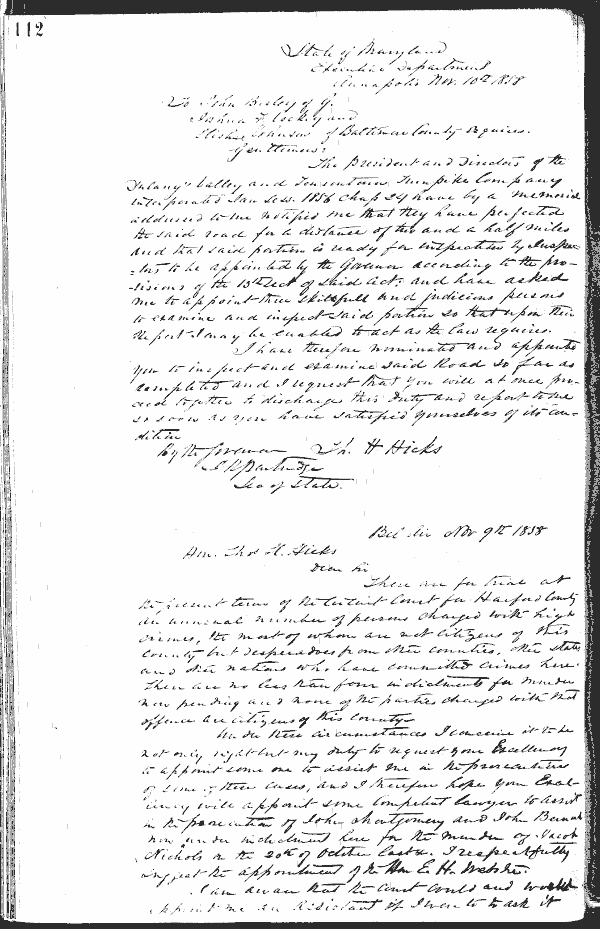 112
State of Maryland
Executive Department
Annapolis Nov. 10th 1858
To John Bosley of G.
Joshua F. Cockey and
Elisha Johnson of Baltimore County Esquires.
Gentlemen:
The President and Directors of the
Dulany's Valley and Towsontown Turnpike Company
incorporated Jan Sess. 1856 Chap 24 have by a Memorial
addressed to me notified me that they have perfected
the said road for a distance of two and a half miles
and that said portion is ready for inspection by Inspec-
-tors to be appointed by the Governor according to the pro-
-visions of the 13th Sect of said Act: and have asked
me to appoint three skillfull and judicious persons
to examine and inspect said portion so that upon their
report I may be enabled to act as the law requires.
I have therefore nominated and appointed
you to inspect and examine said Road so far as
completed and I request that you will at once pro-
ceed together to discharge this duty and report to me
so soon as you have satisfied yourselves of its con-
dition
By the Governor Th. H Hicks
J R Partridge
Sec of State.
Bel Air Nov 9th 1858
Hon. Thos H. Hicks
Dear Sir
There are for trial at
the present term of the Circuit Court for Harford County
an unusual number of persons charged with high
crimes, the most of whom are not citizens of this
county but desperadoes from other counties, other states
and other nations who have committed crimes here.
There are no less than four indictments for murder
now pending and none of the parties charged with that
offence are citizens of this county.
Under these circumstances I conceive it to be
not only right but my duty to request your Excellency
to appoint some one to assist me in the prosecutions
of some of these cases, and I therefore hope your Excel-
lency will appoint some competent lawyer to assist
in the prosecution of John Montgomery and John
now under indictment here for the murder of Jacob
Nichols on the 20th of October last. I respectfully
suggest the appointment of the Hon E. H. Webster.
I am aware that the Court could and would
appoint me an assistant if I were to ask it